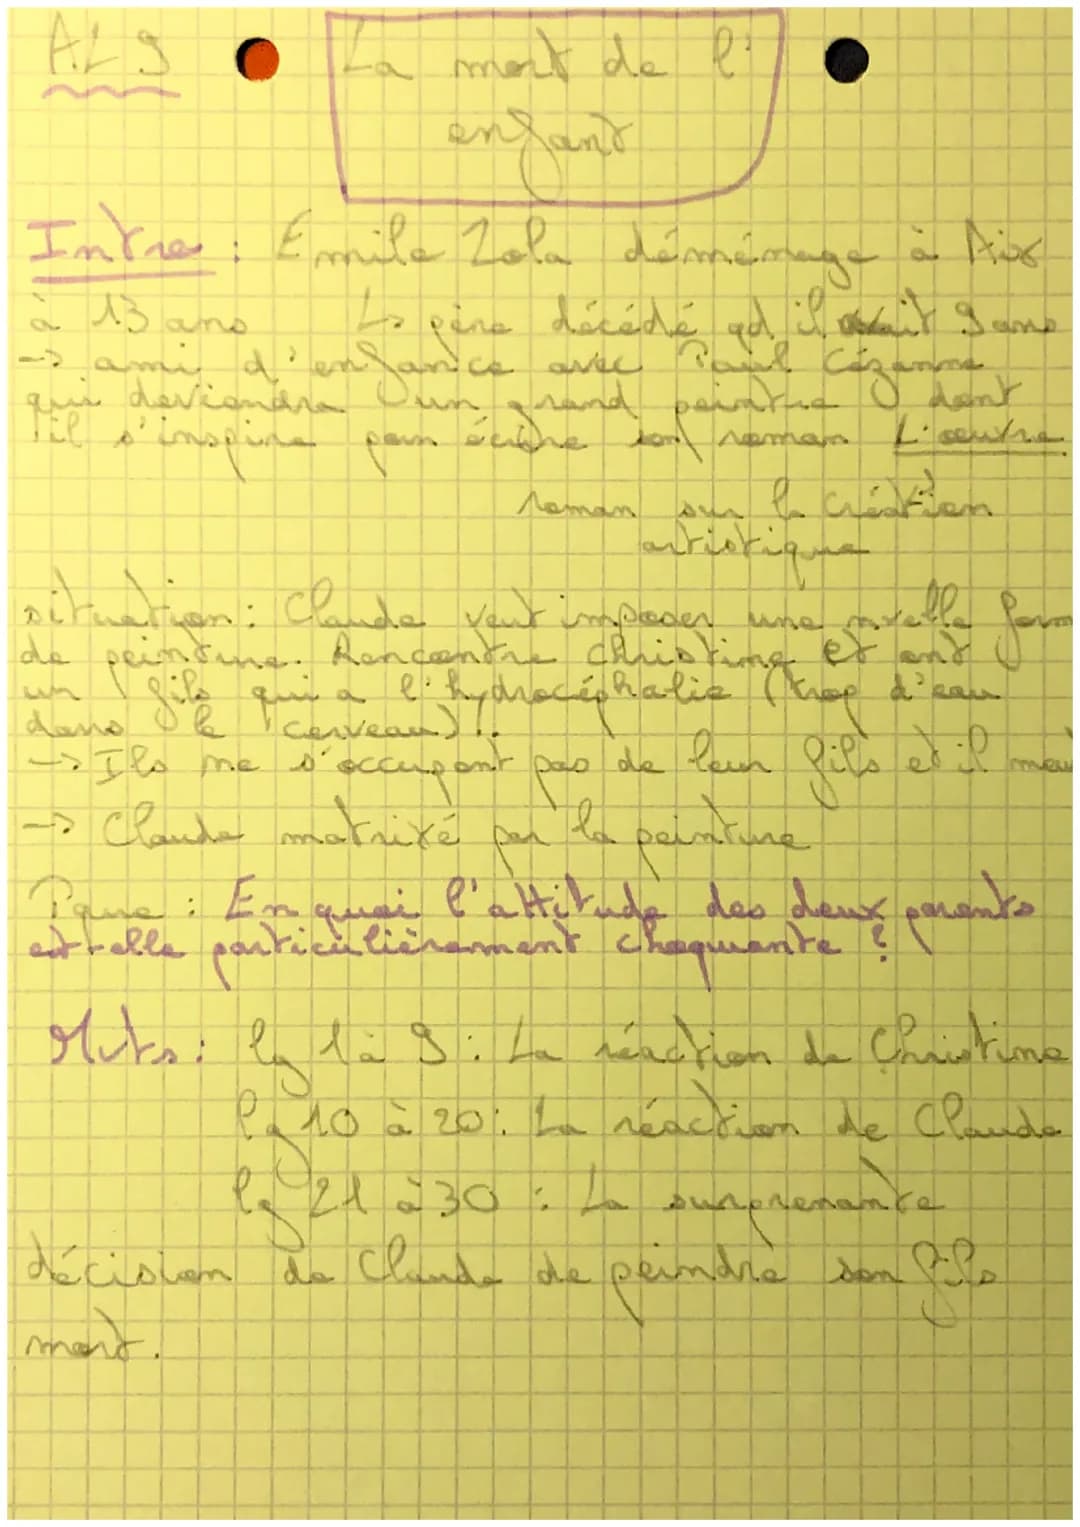 AL 9
La mort de l'
enfant
Intro : Emile Zola déménage à Aix
à 13 ans Ls père décédé qd il avait 9 ans
-> ami d'enfance avec Paul Cézanne
qui deviendra un grand peintre dont
il s'inspire pour écrire son roman L'œuvre
roman sur la création
artistique
situation : Claude veut imposer une nvelle form
de peinture. Rencontre Christine et ont
un fils qui a l'hydrocéphalie (trop d'eau
dans le cerveau).
-> Ils ne s'occupent pas de leur fils et il meu
-> Claude matrixé par la peinture
Pque : En quoi l'attitude des deux parents
est-elle particulièrement choquante ?
Mvts : lg 1 à 9 : La réaction de Christine
lg 10 à 20 : La réaction de Claude
lg 21 à 30 : La surprenante
décision de Claude de peindre son fils
mort.